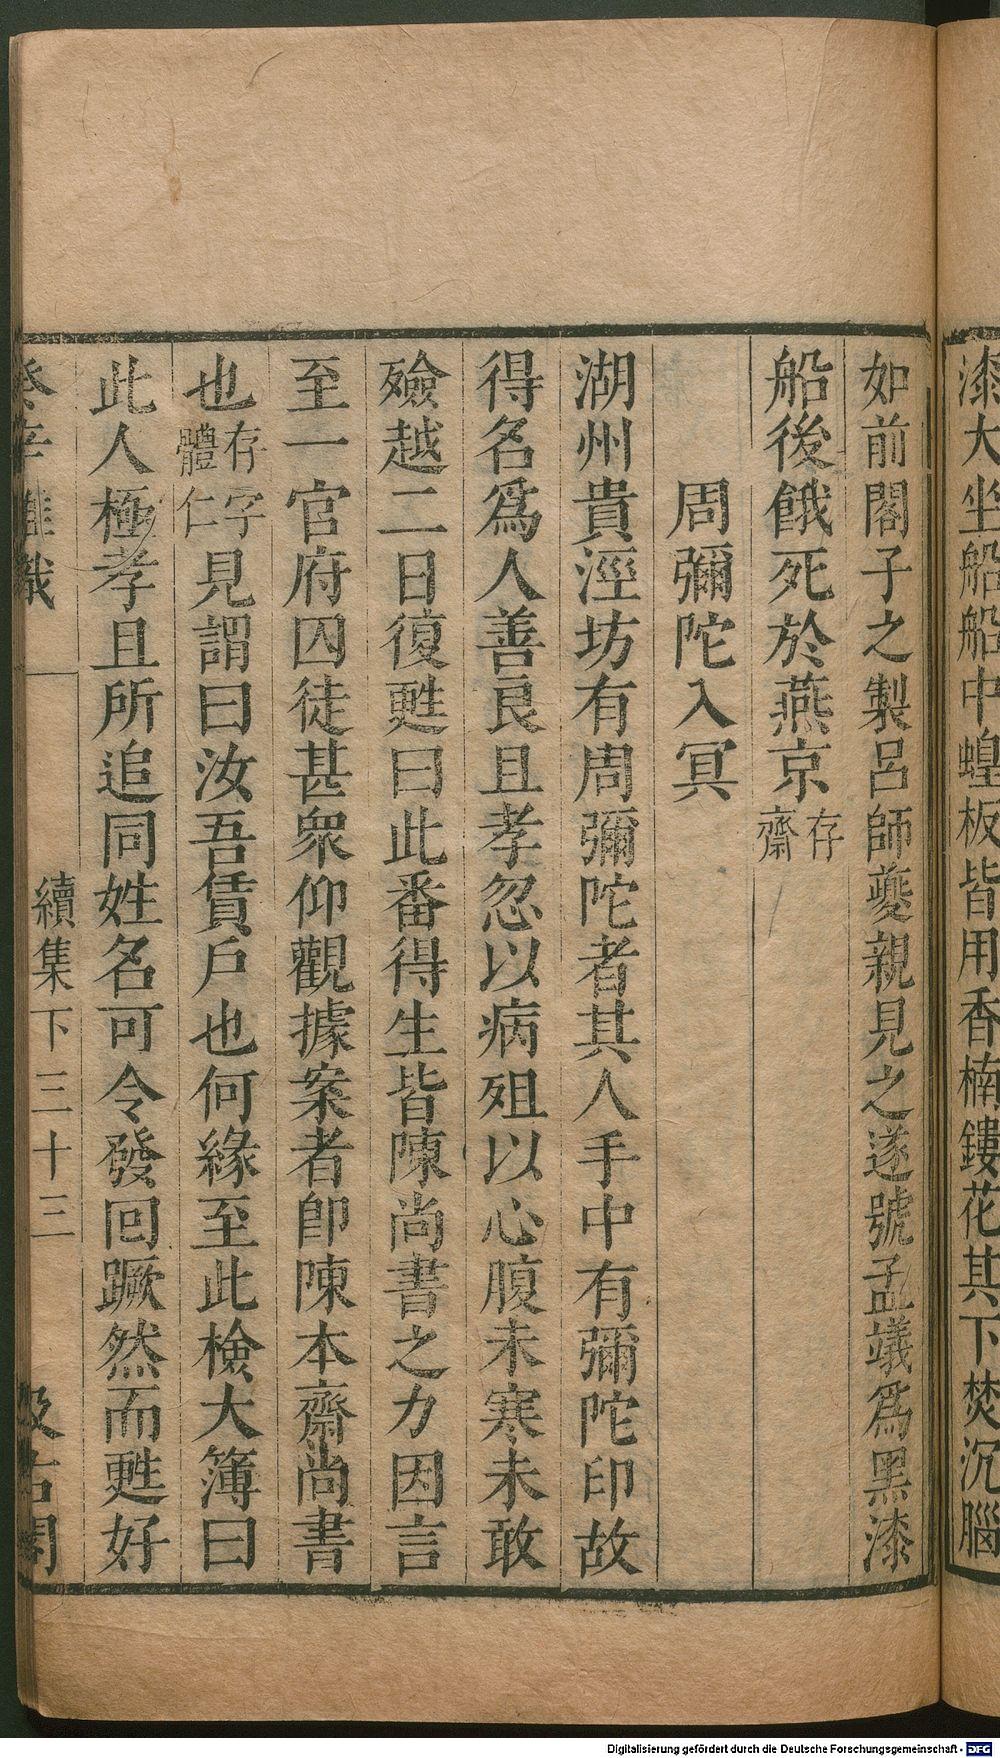 漆大坐船船中蝗板皆用香楠鏤花其下焚沉腦
如前閣子之製呂師夔親見之遂號孟蟻爲黑漆
船後餓死於燕京存齋
周彌陀入冥
湖州貴涇坊有周彌陀者其人手中有彌陀印故
得名爲人善良且孝忽以病殂以心腹未寒未敢
殮越二日復甦曰此番得生皆陳尚書之力因言
至一官府囚徒甚衆仰觀據案者卽陳本齋尚書
也存字體仁見謂曰汝吾賃戶也何緣至此檢大簿曰
此人極孝且所追同姓名可令發回蹶然而甦好
癸辛雜識 續集下 三十三 汲古閣
Digitalisierung gefördert durch die Deutsche Forschungsgemeinschaft - DFG